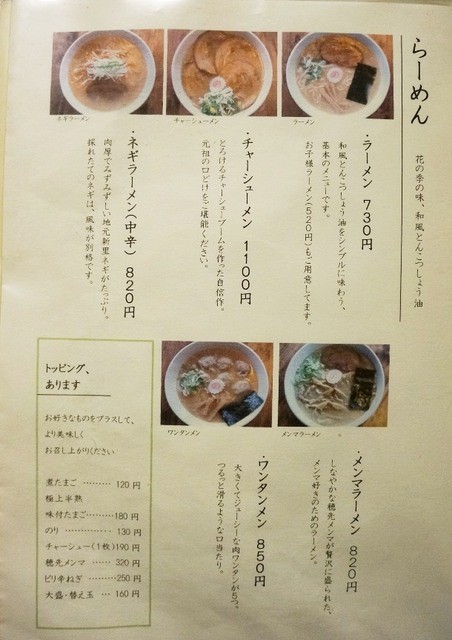 らーめん
花の季の味、和風とんこつしょう油
ラーメン
チャーシューメン
ネギラーメン
・ラーメン 730円
和風とんこつしょう油をシンプルに味わう、
基本のメニューです。
お子様ラーメン(520円)もご用意してます。
・チャーシューメン 1100円
とろけるチャーシューブームを作った自信作。
元祖の口どけをご堪能ください。
・ネギラーメン(中辛) 820円
肉厚でみずみずしい地元新里ネギがたっぷり。
採れたてのネギは、風味が別格です。
メンマラーメン
ワンタンメン
・メンマラーメン 820円
しなやかな穂先メンマが贅沢に盛られた、
メンマ好きのためのラーメン。
・ワンタンメン 850円
大きくてジューシーな肉ワンタンが5つ。
つるっと滑るような口当たり。
トッピング、
あります
お好きなものをプラスして、
より美味しく
お召し上がりください
煮たまご ……… 120円
極上半熟
味付たまご ……180円
のり …………… 130円
チャーシュー(1枚)190円
穂先メンマ …… 320円
ピリ辛ねぎ ……250円
大盛・替え玉 … 160円